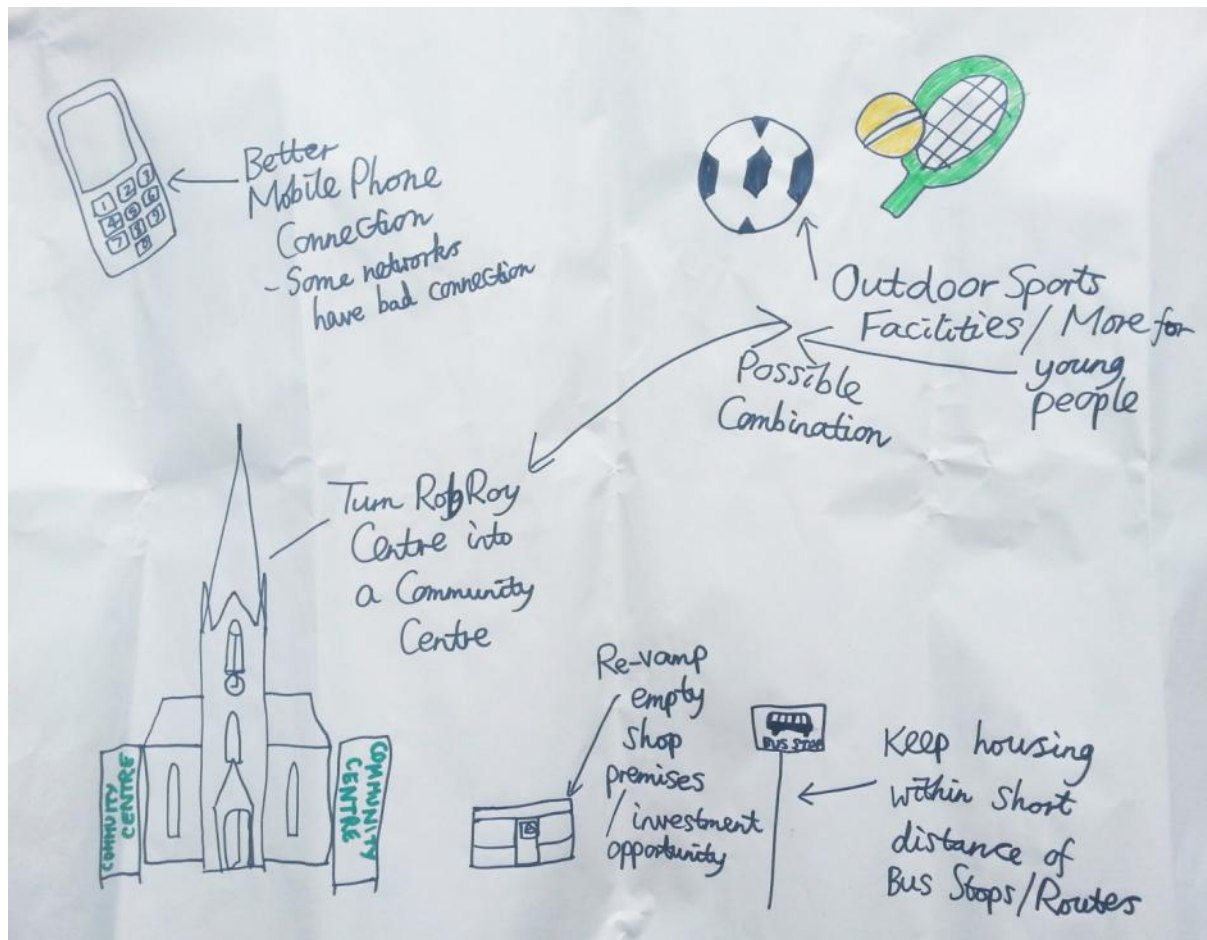 1 2 3
4 5 6
7 8 9
0
Better
Mobile Phone
Connection
- Some networks
have bad connection
Outdoor Sports
Facilities / More for
young
people
Possible
Combination
Turn Rob Roy
Centre into
a Community
Centre
COMMUNITY
CENTRE
COMMUNITY
CENTRE
Re-vamp
empty
shop
premises
/ investment
opportunity
BUS STOP
Keep housing
within short
distance of
Bus Stops/Routes